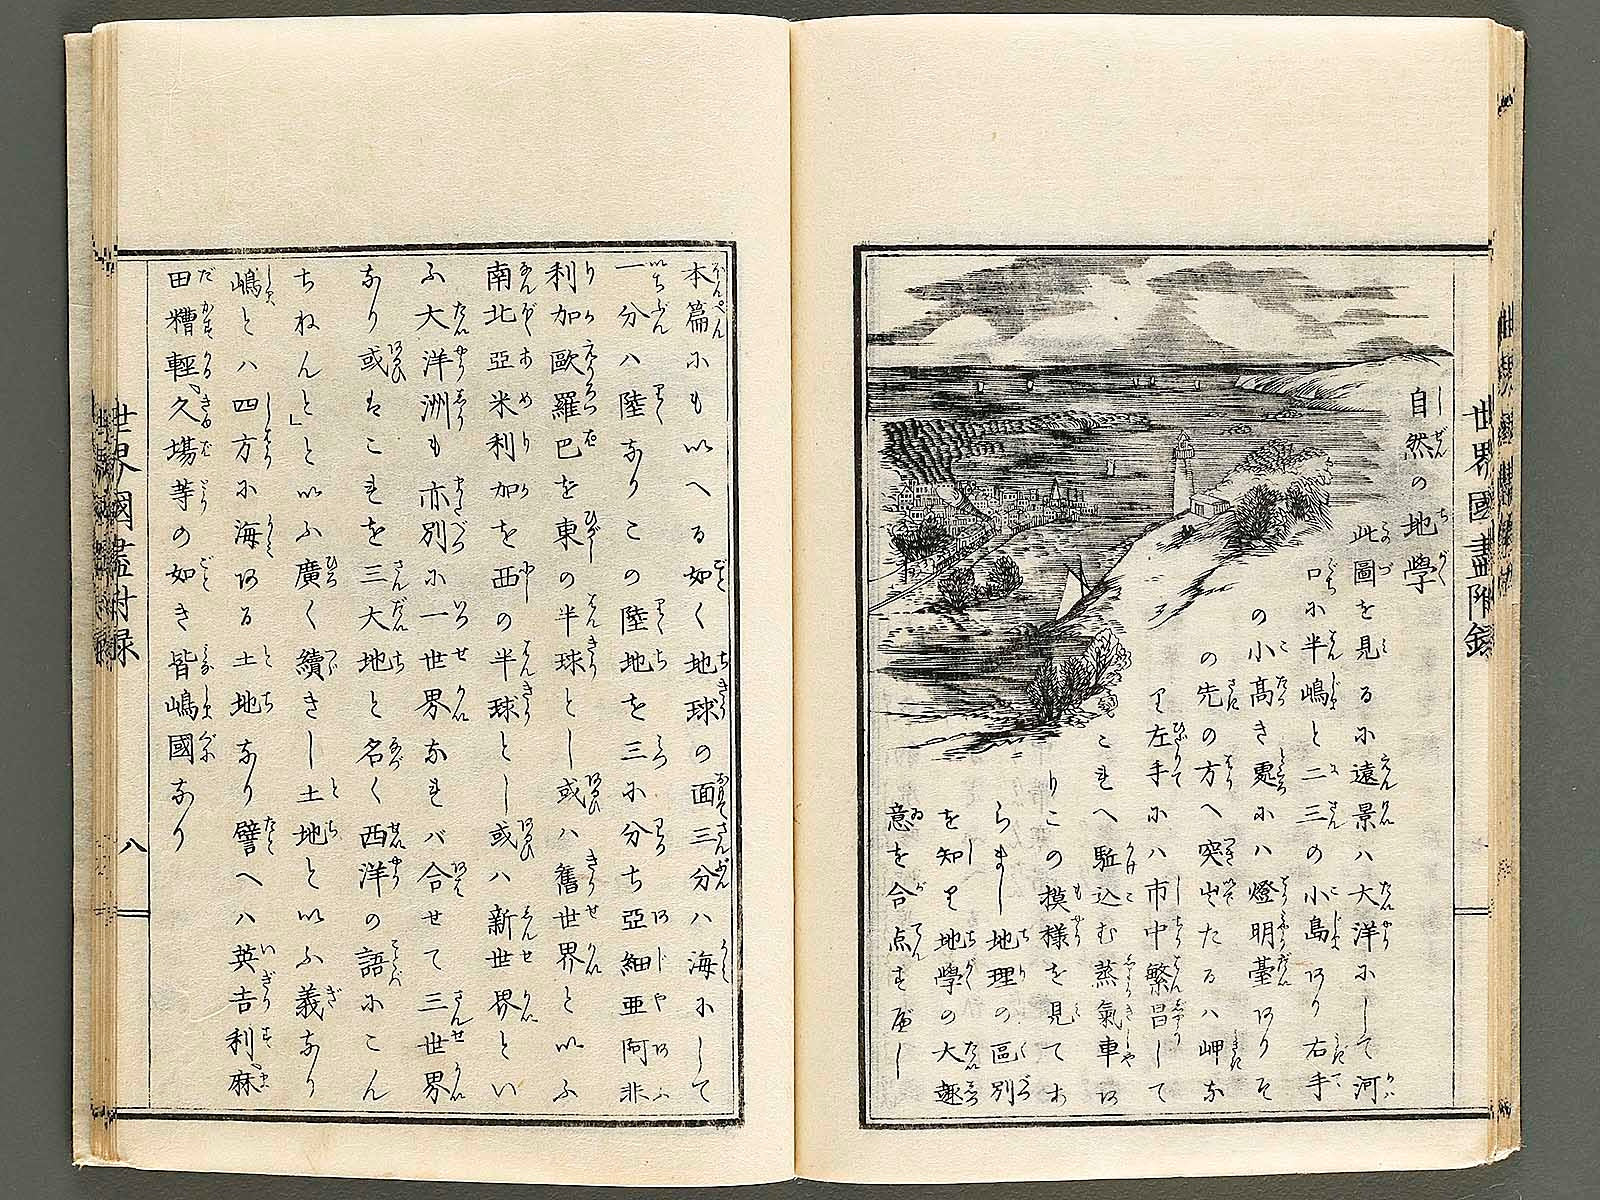 世界國盡附録
自然の地學
此圖を見るに遠景ハ大洋にして河
口に半嶋と二三の小島あり右手
の小高き處にハ燈明臺ありそ
の先の方へ突出たるハ岬な
り左手にハ市中繁昌して
これへ駈込む蒸氣車あ
りこの摸様を見てあ
らまし地理の區別
を知り地學の大趣
意を合点すべし
本篇にもいへる如く地球の面三分ハ海にして
一分ハ陸なりこの陸地を三に分ち亞細亜阿非
利加歐羅巴を東の半球とし或ハ舊世界といふ
南北亞米利加を西の半球とし或ハ新世界とい
ふ大洋洲も亦別に一世界なれバ合せて三世界
なり或はこれを三大地と名く西洋の語にこん
ちねんと」といふ廣く續きし土地といふ義なり
嶋とハ四方に海ある土地なり譬へハ英吉利、麻
田糟輕、久塲等の如き皆嶋國なり
世界國盡附録
八